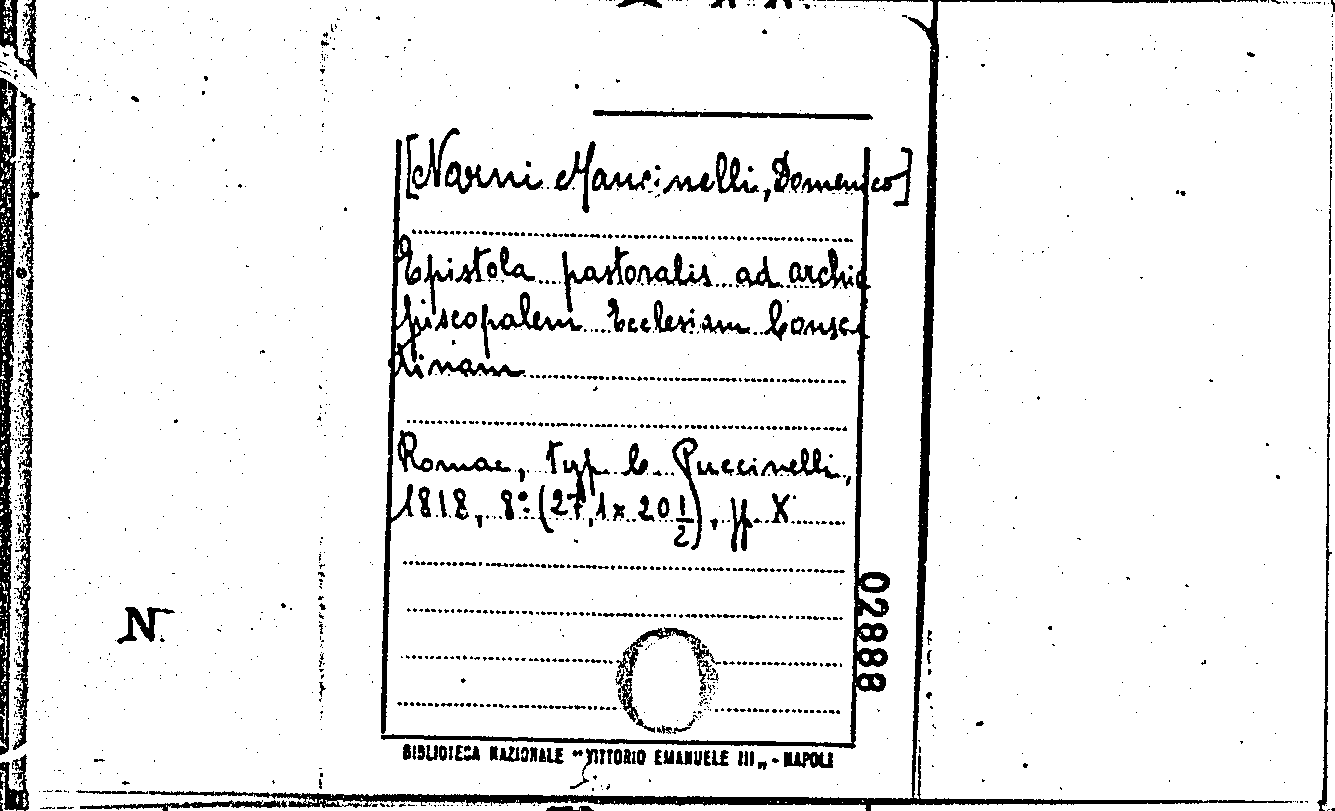 [Narni Mancinelli, Domenico]
Epistola pastoralis ad archie
piscopalem Ecclesiam Consen
tinam
Romae, typ. C. Puccinelli,
1818, 8º (27,1 x 20 1/2), pp. X
N.
02888
BIBLIOTECA NAZIONALE "VITTORIO EMANUELE III„ - NAPOLI